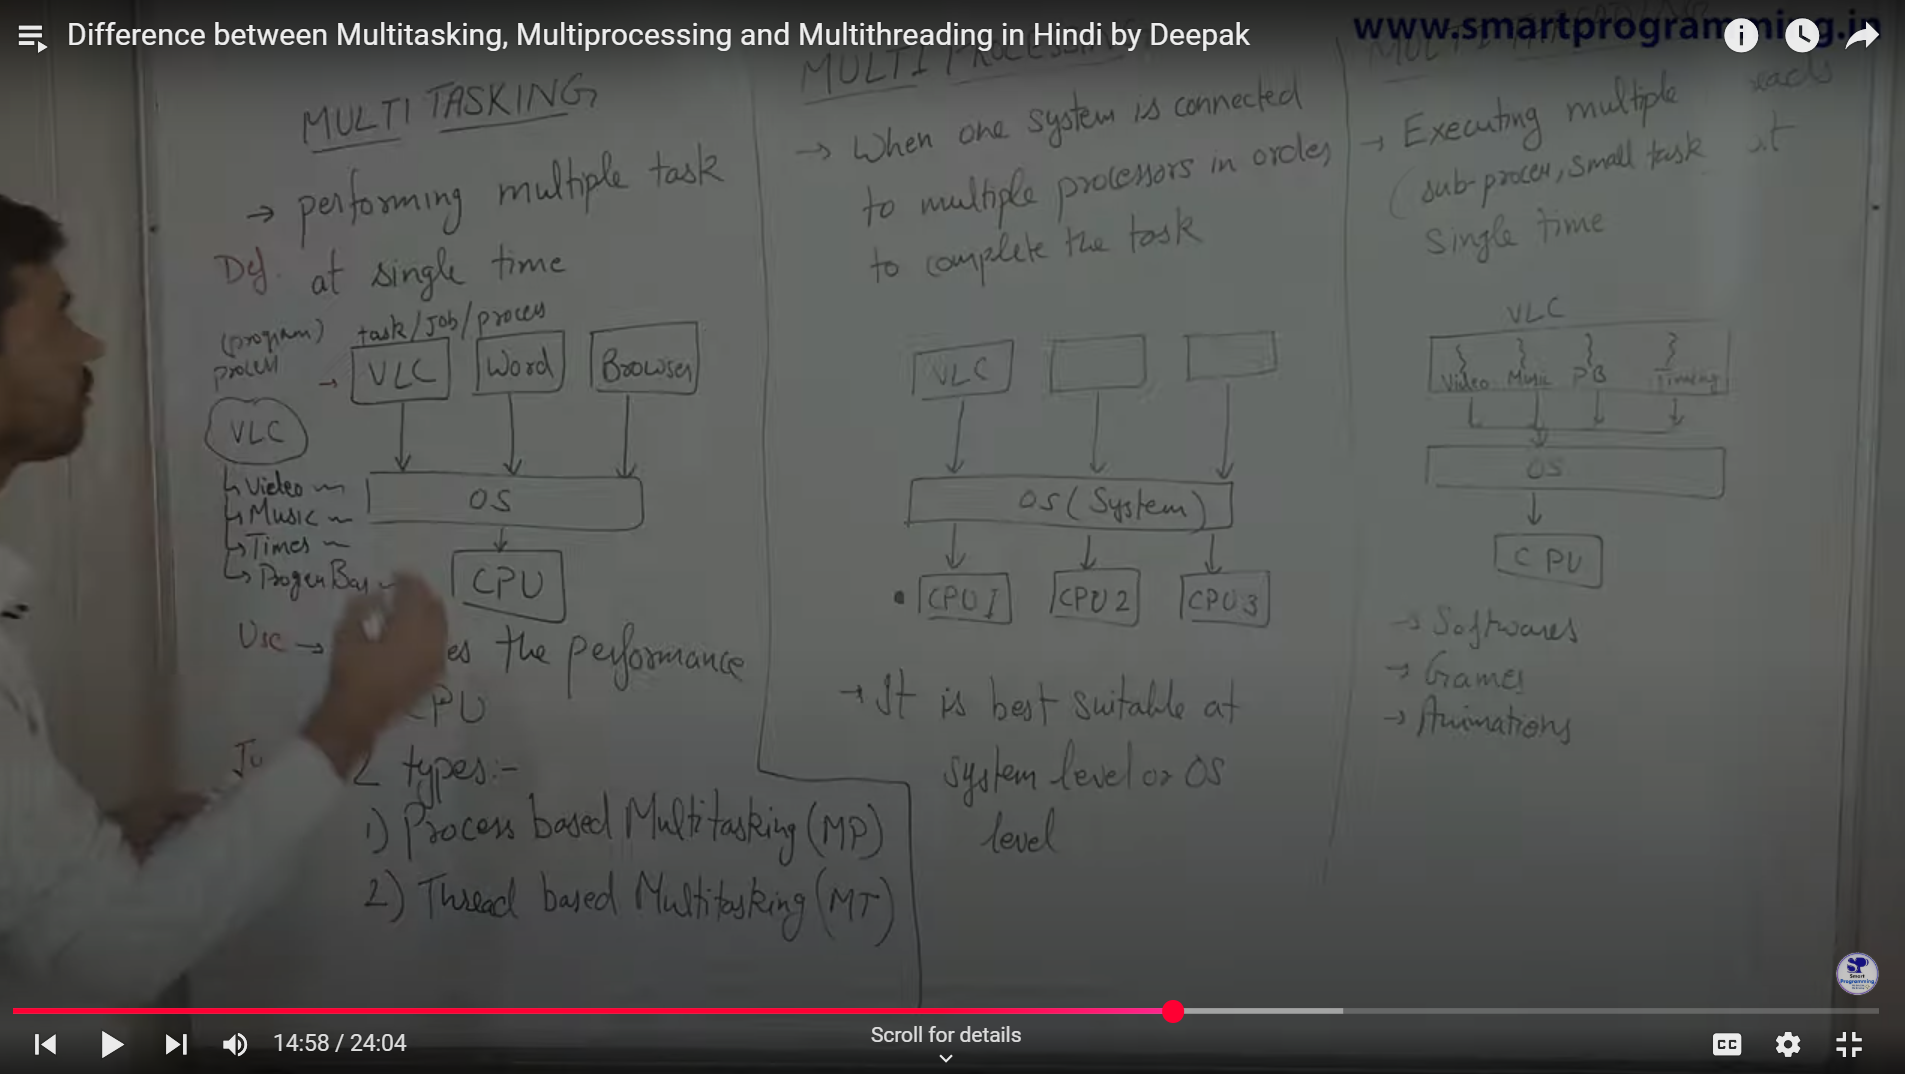 Difference between Multitasking, Multiprocessing and Multithreading in Hindi by Deepak
www.smartprogramming.in
MULTI TASKING
→ performing multiple task
Def. at single time
(program) task/Job/process
process → VLC Word Browser
VLC
Video
Music
Times
OS
CPU
Use → the performance
CPU
2 types:-
1) Process based Multitasking (MP)
2) Thread based Multitasking (MT)
MULTI PROCESSING
→ When one system is connected
to multiple processors in order
to complete the task
VLC
OS (System)
CPU 1 CPU 2 CPU 3
→ It is best suitable at
system level or OS
level
→ Executing multiple
(sub-process, small task
Single time
VLC
Video Music PB Timing
OS
CPU
→ Softwares
→ Games
→ Animations
SP
Smart
Programming
14:58 / 24:04
Scroll for details
CC